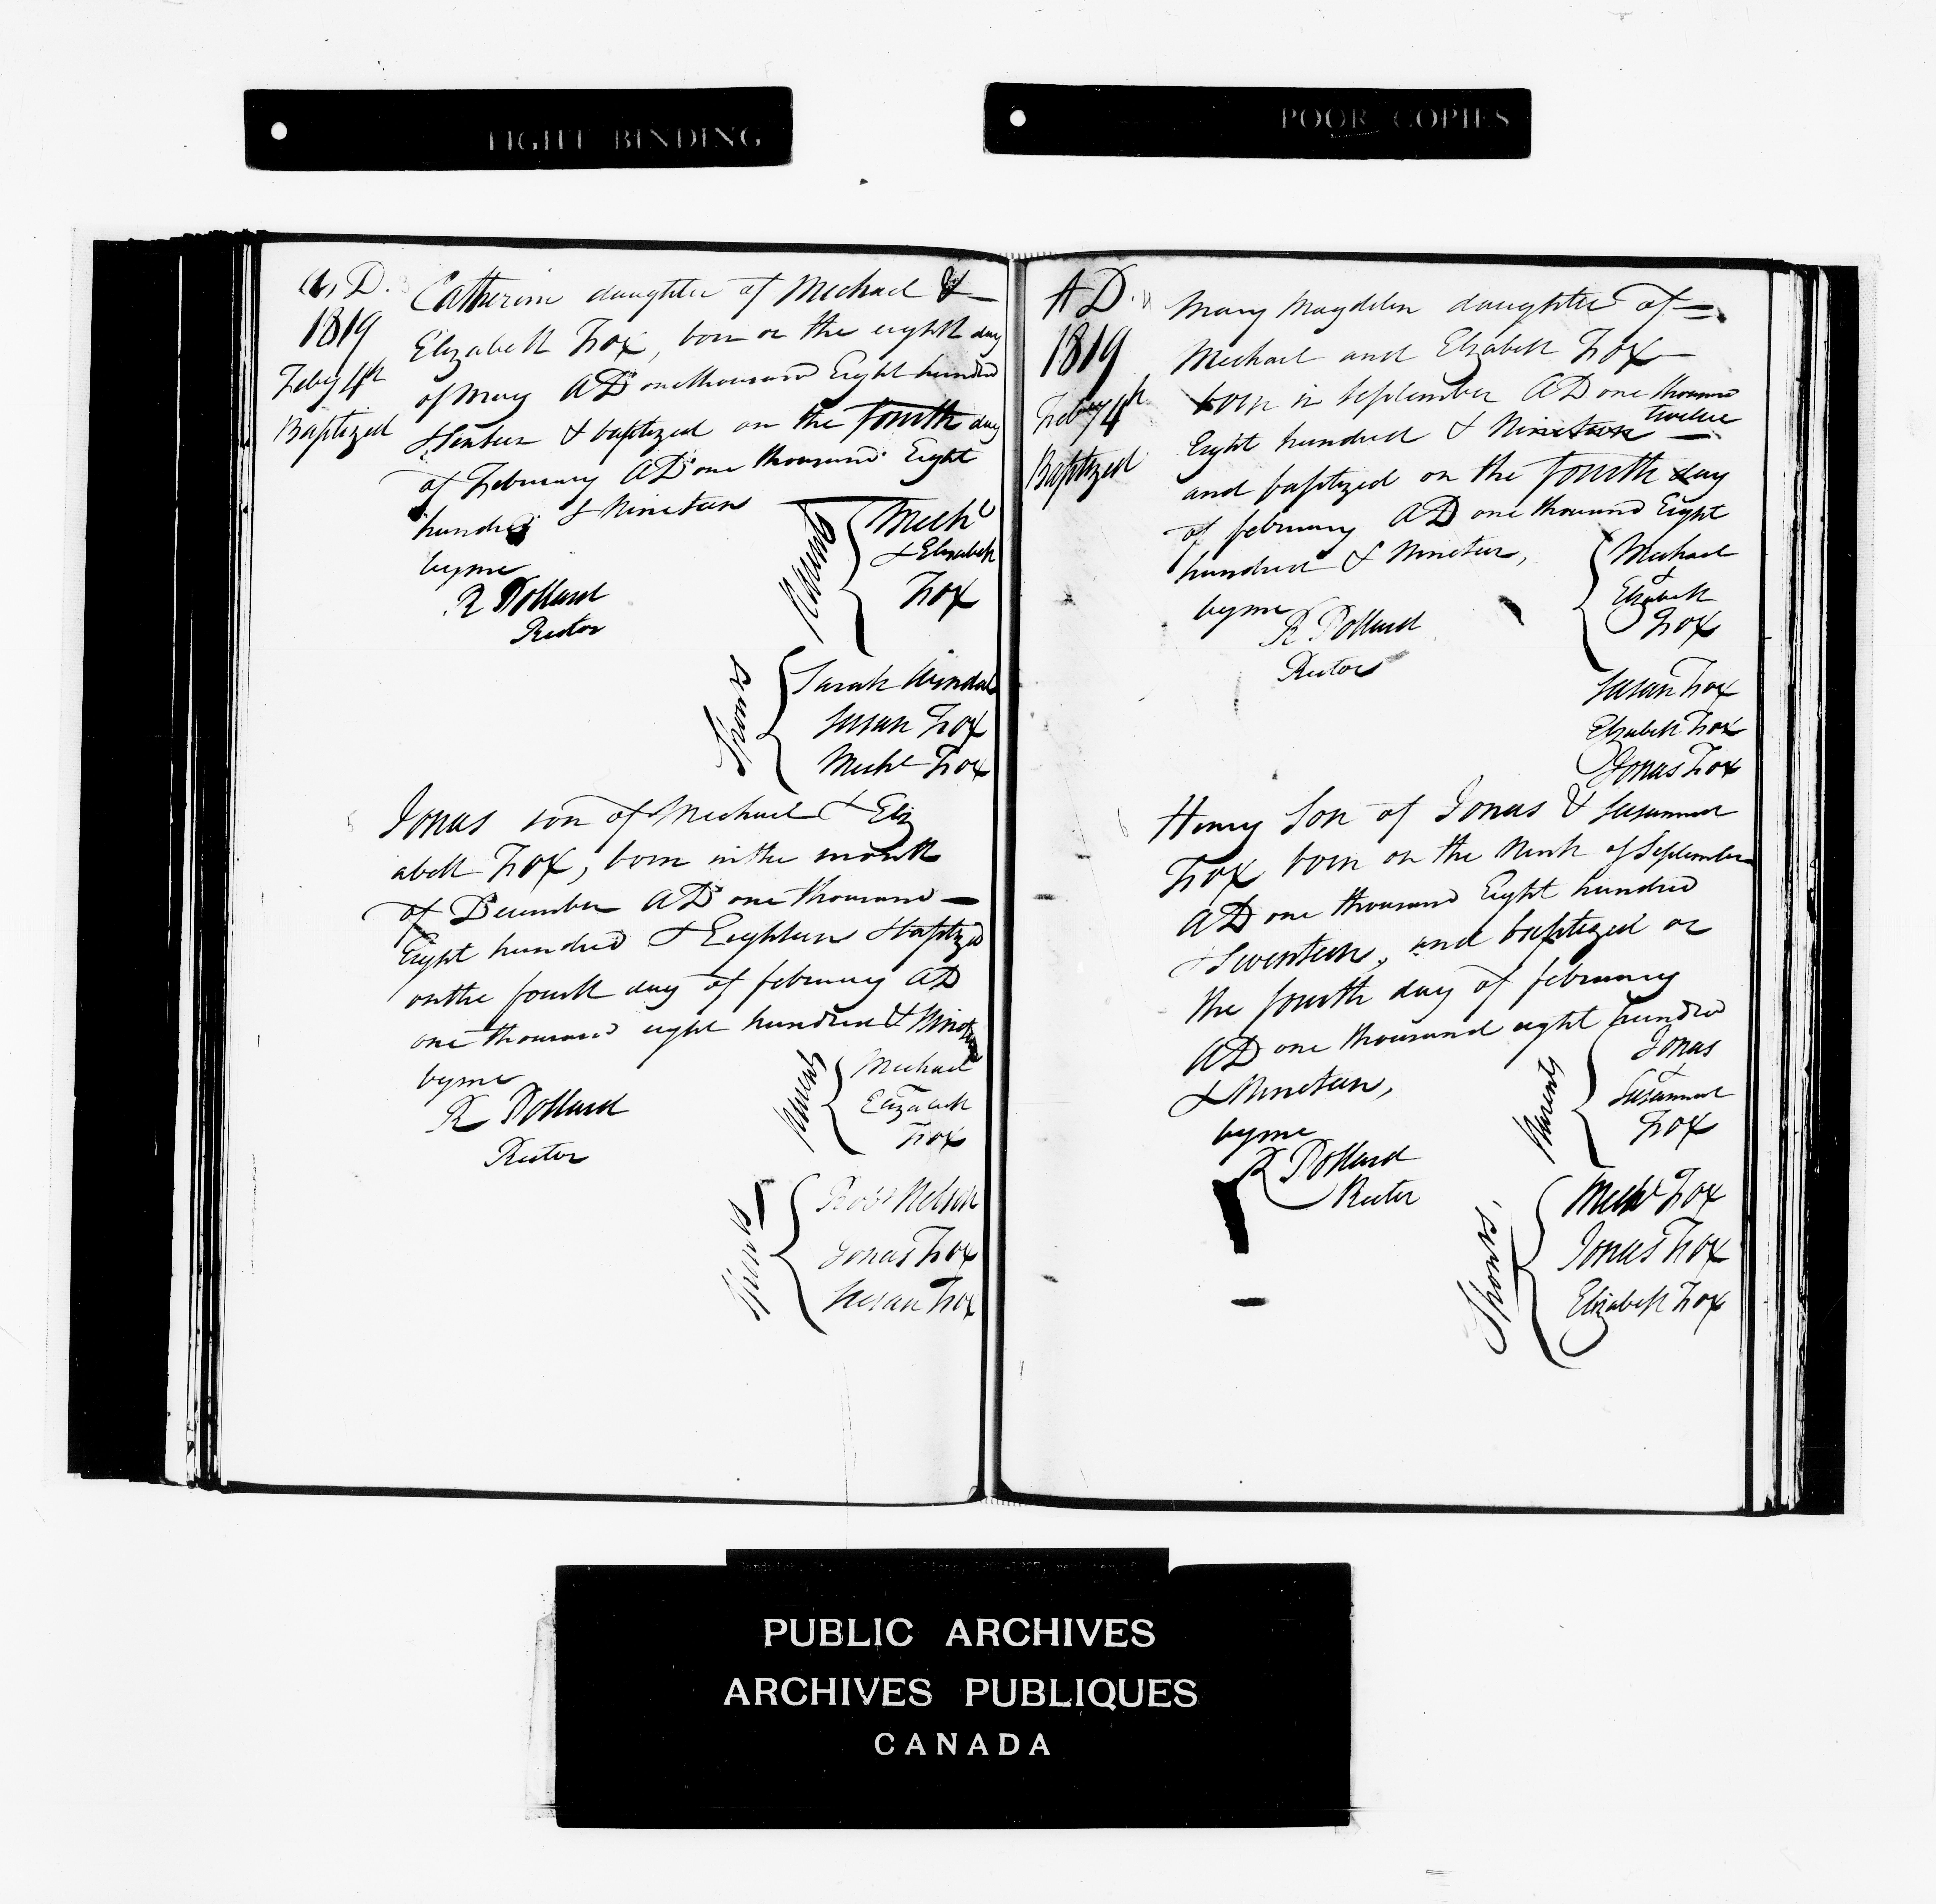 TIGHT BINDING
POOR COPIES
A, D.
1819
Feby 4th
Baptized
3 Catherine daughter of Michael &
Elizabeth Fox, born on the eighth day
of May AD one thousand Eight hundred
& baptized on the fourth day
of February AD one thousand Eight
hundred & Nineteen
by me
R Pollard
Rector
Parents
Mich l
& Elizabeth
Fox
Sponrs
Sarah
Susan Fox
Michl Fox
5 Jonas son of Michael & Eliz
abeth Fox, born in the month
of December AD one thousand
Eight hundred & Eighteen & baptized
on the fourth day of february AD
one thousand eight hundred & Nineteen
by me
R Pollard
Rector
Parents
Michael
Elizabeth
Fox
Sponrs
Robt Nelson
Jonas Fox
Susan Fox
AD.
1819
Febuy 4th
Baptized
4 Mary Magdelen daughter of
Michael and Elizabeth Fox
born in September AD one thousand
Eight hundred & Nineteen twelve
and baptized on the fourth day
of february AD one thousand Eight
hundred & Nineteen,
by me
R Pollard
Rector
Michael
&
Elizabeth
Fox
Susan Fox
Elizabeth Fox
Jonas Fox
6 Henry Son of Jonas & Susannah
Fox born on the Ninth of September
AD one thousand Eight hundred
& Seventeen, and baptized on
the fourth day of february
AD one thousand eight hundred
& Nineteen,
by me
R Pollard
Rector
Parents
Jonas
&
Susannah
Fox
Sponrs,
Michl Fox
Jonas Fox
Elizabeth Fox
PUBLIC ARCHIVES
ARCHIVES PUBLIQUES
CANADA